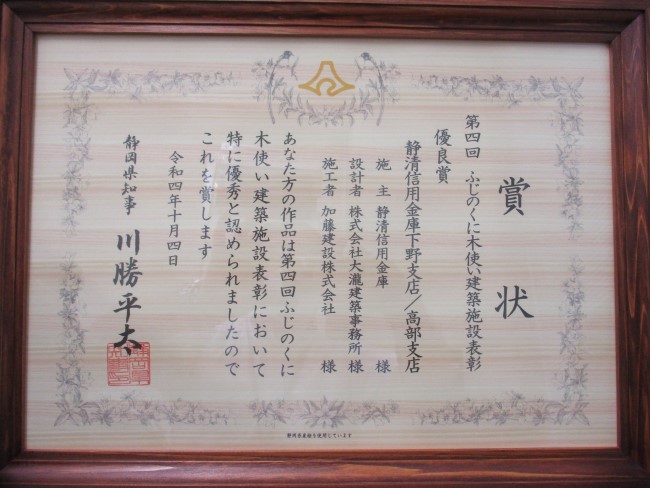 賞状
第四回 ふじのくに木使い建築施設表彰
優良賞
静清信用金庫下野支店／高部支店
施主 静清信用金庫 様
設計者 株式会社大瀧建築事務所 様
施工者 加藤建設株式会社 様
あなた方の作品は第四回ふじのくに
木使い建築施設表彰において
特に優秀と認められましたので
これを賞します
令和四年十月四日
静岡県知事 川勝平太
静岡県産紙を使用しています